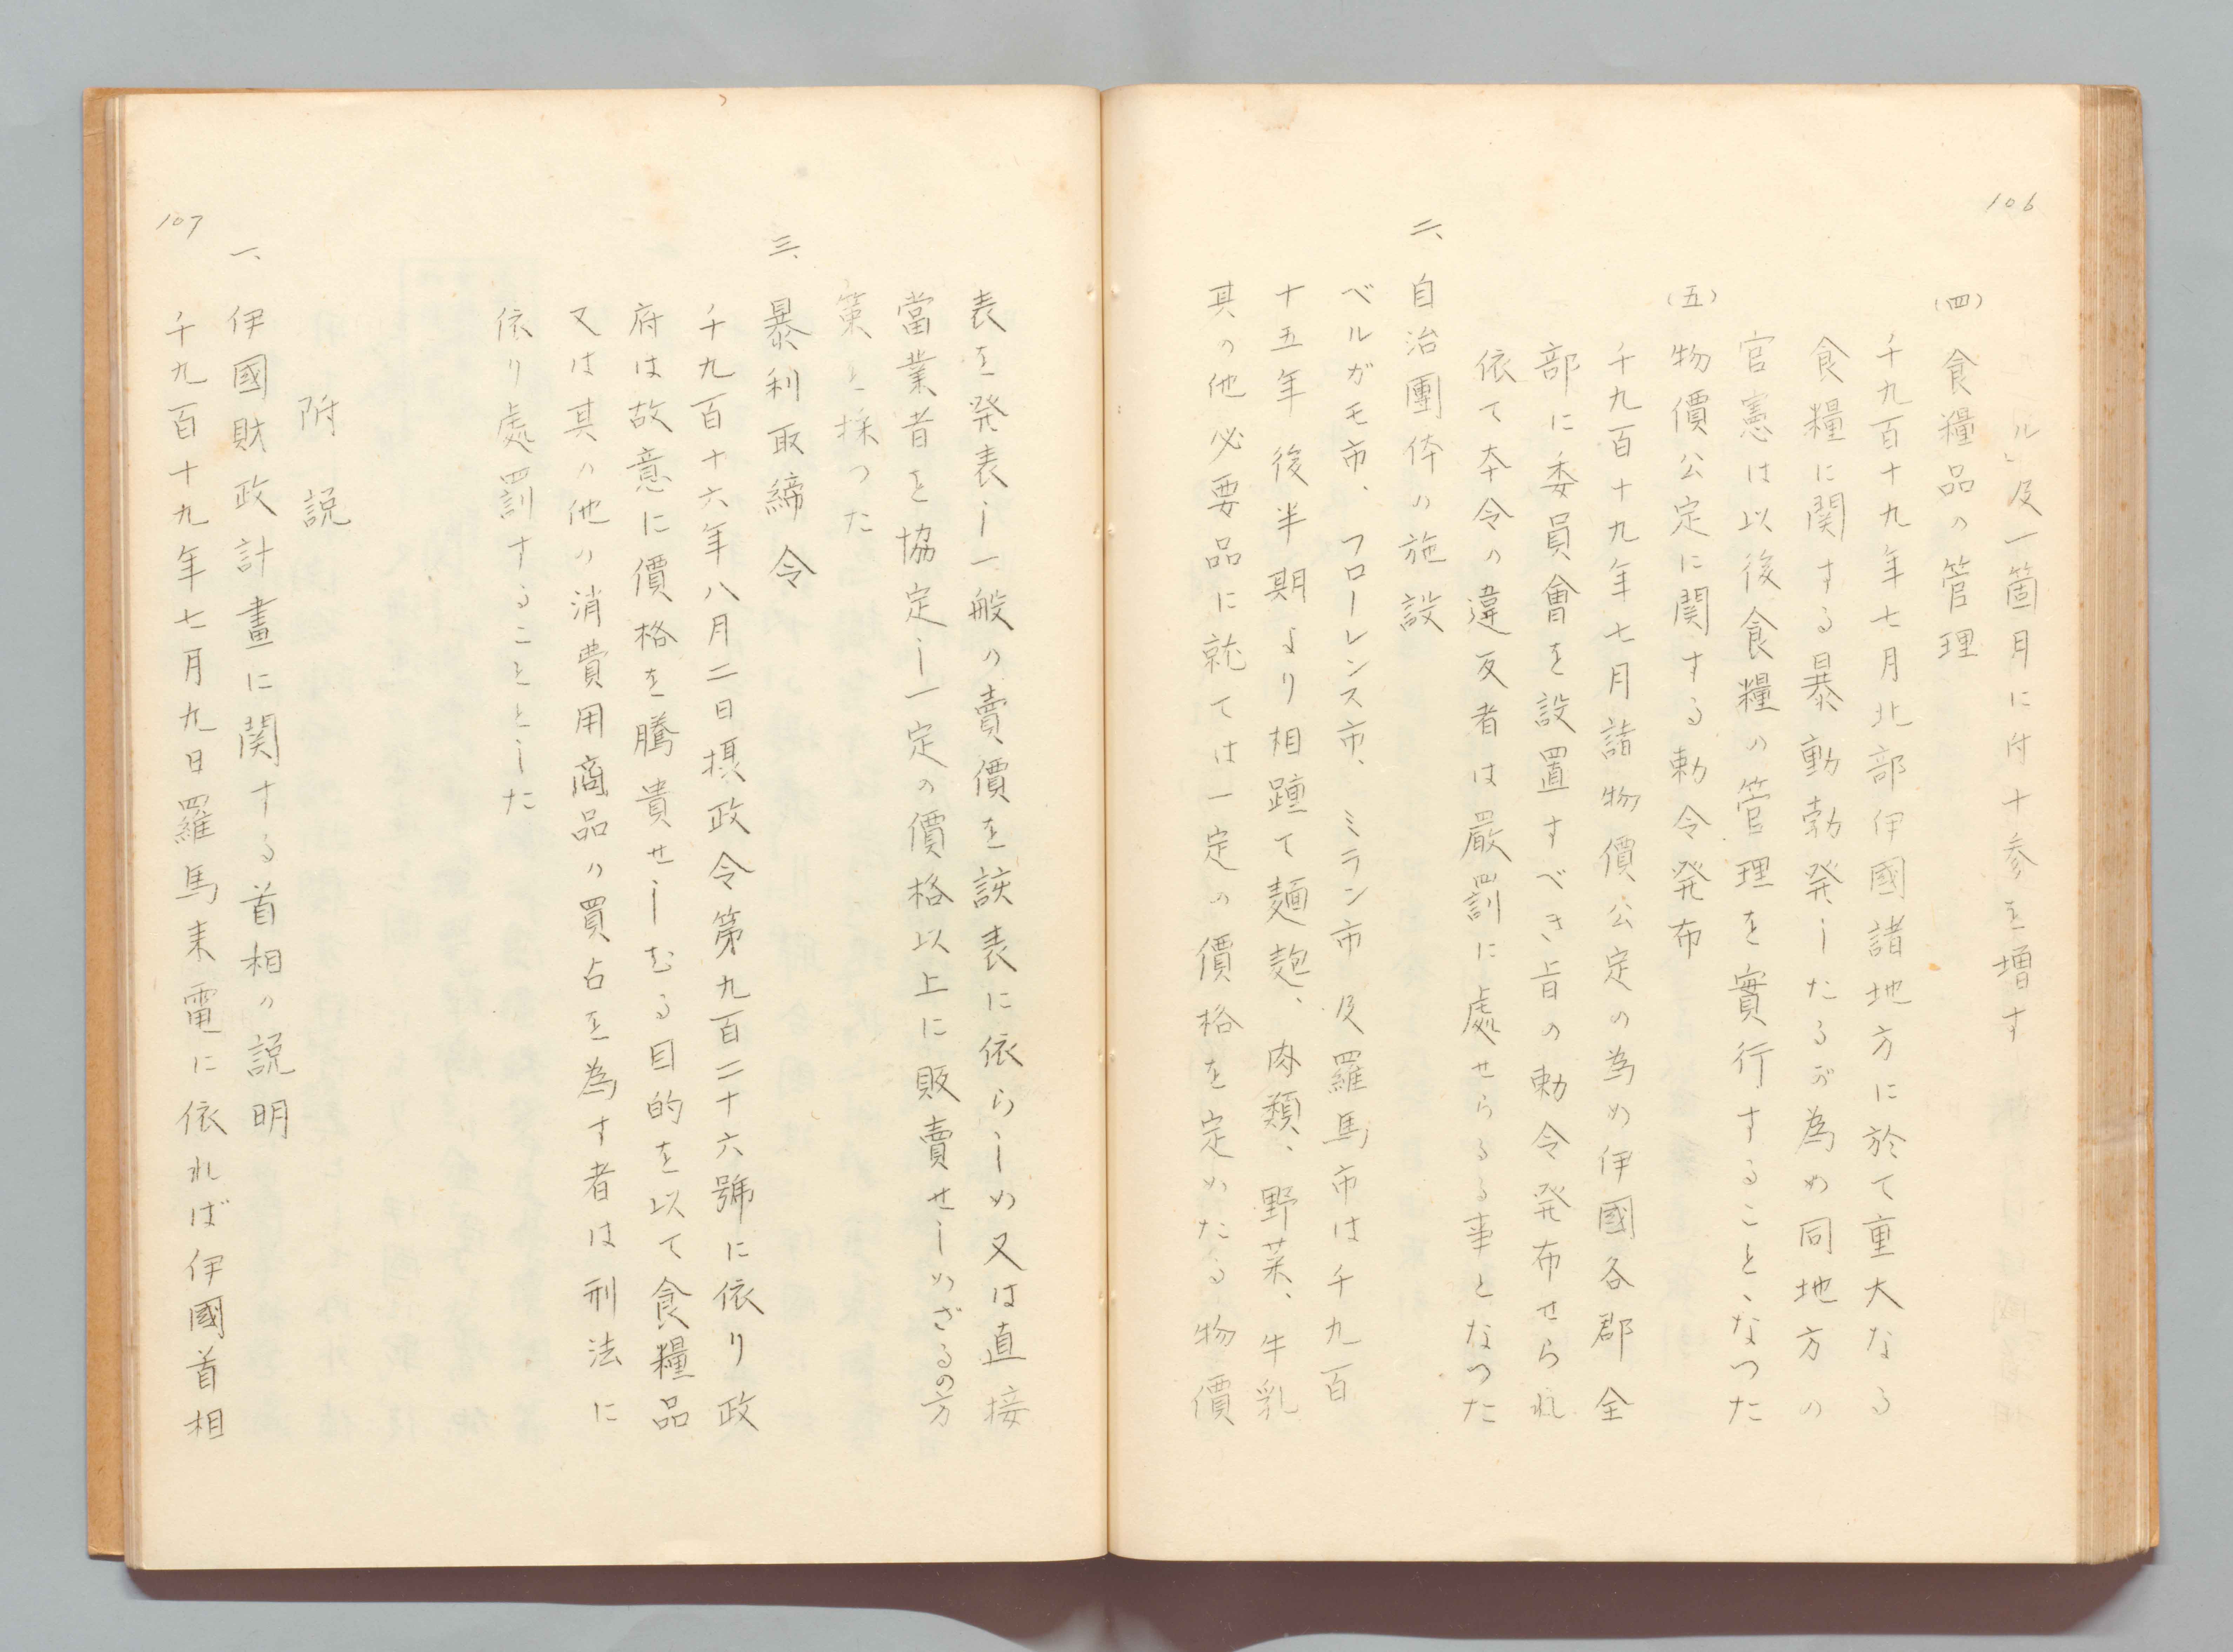 106
ル」及一箇月に付十参を増す
(四) 食糧品の管理
千九百十九年七月北部伊國諸地方に於て重大なる
食糧に関する暴動勃発したるが為め同地方の
官憲は以後食糧の管理を實行することゝなつた
(五) 物價公定に関する勅令発布
千九百十九年七月諸物價公定の為め伊國各郡全
部に委員會を設置すべき旨の勅令発布せられ
依て本令の違反者は嚴罰に處せらるる事となつた
二、自治團体の施設
ベルガモ市、フローレンス市、ミラン市及羅馬市は千九百
十五年後半期より相踵て麺麭、肉類、野菜、牛乳
其の他必要品に就ては一定の價格を定めたる物價
表を発表し一般の賣價を該表に依らしめ又は直接
當業者を協定し一定の價格以上に販賣せしめざるの方
策を採つた
三、暴利取締令
千九百十六年八月二日摂政令第九百二十六號に依り政
府は故意に價格を騰貴せしむる目的を以て食糧品
又は其の他の消費用商品の買占を為す者は刑法に
依り處罰することとした
附説
一、伊國財政計畫に関する首相の説明
千九百十九年七月九日羅馬来電に依れば伊國首相
107